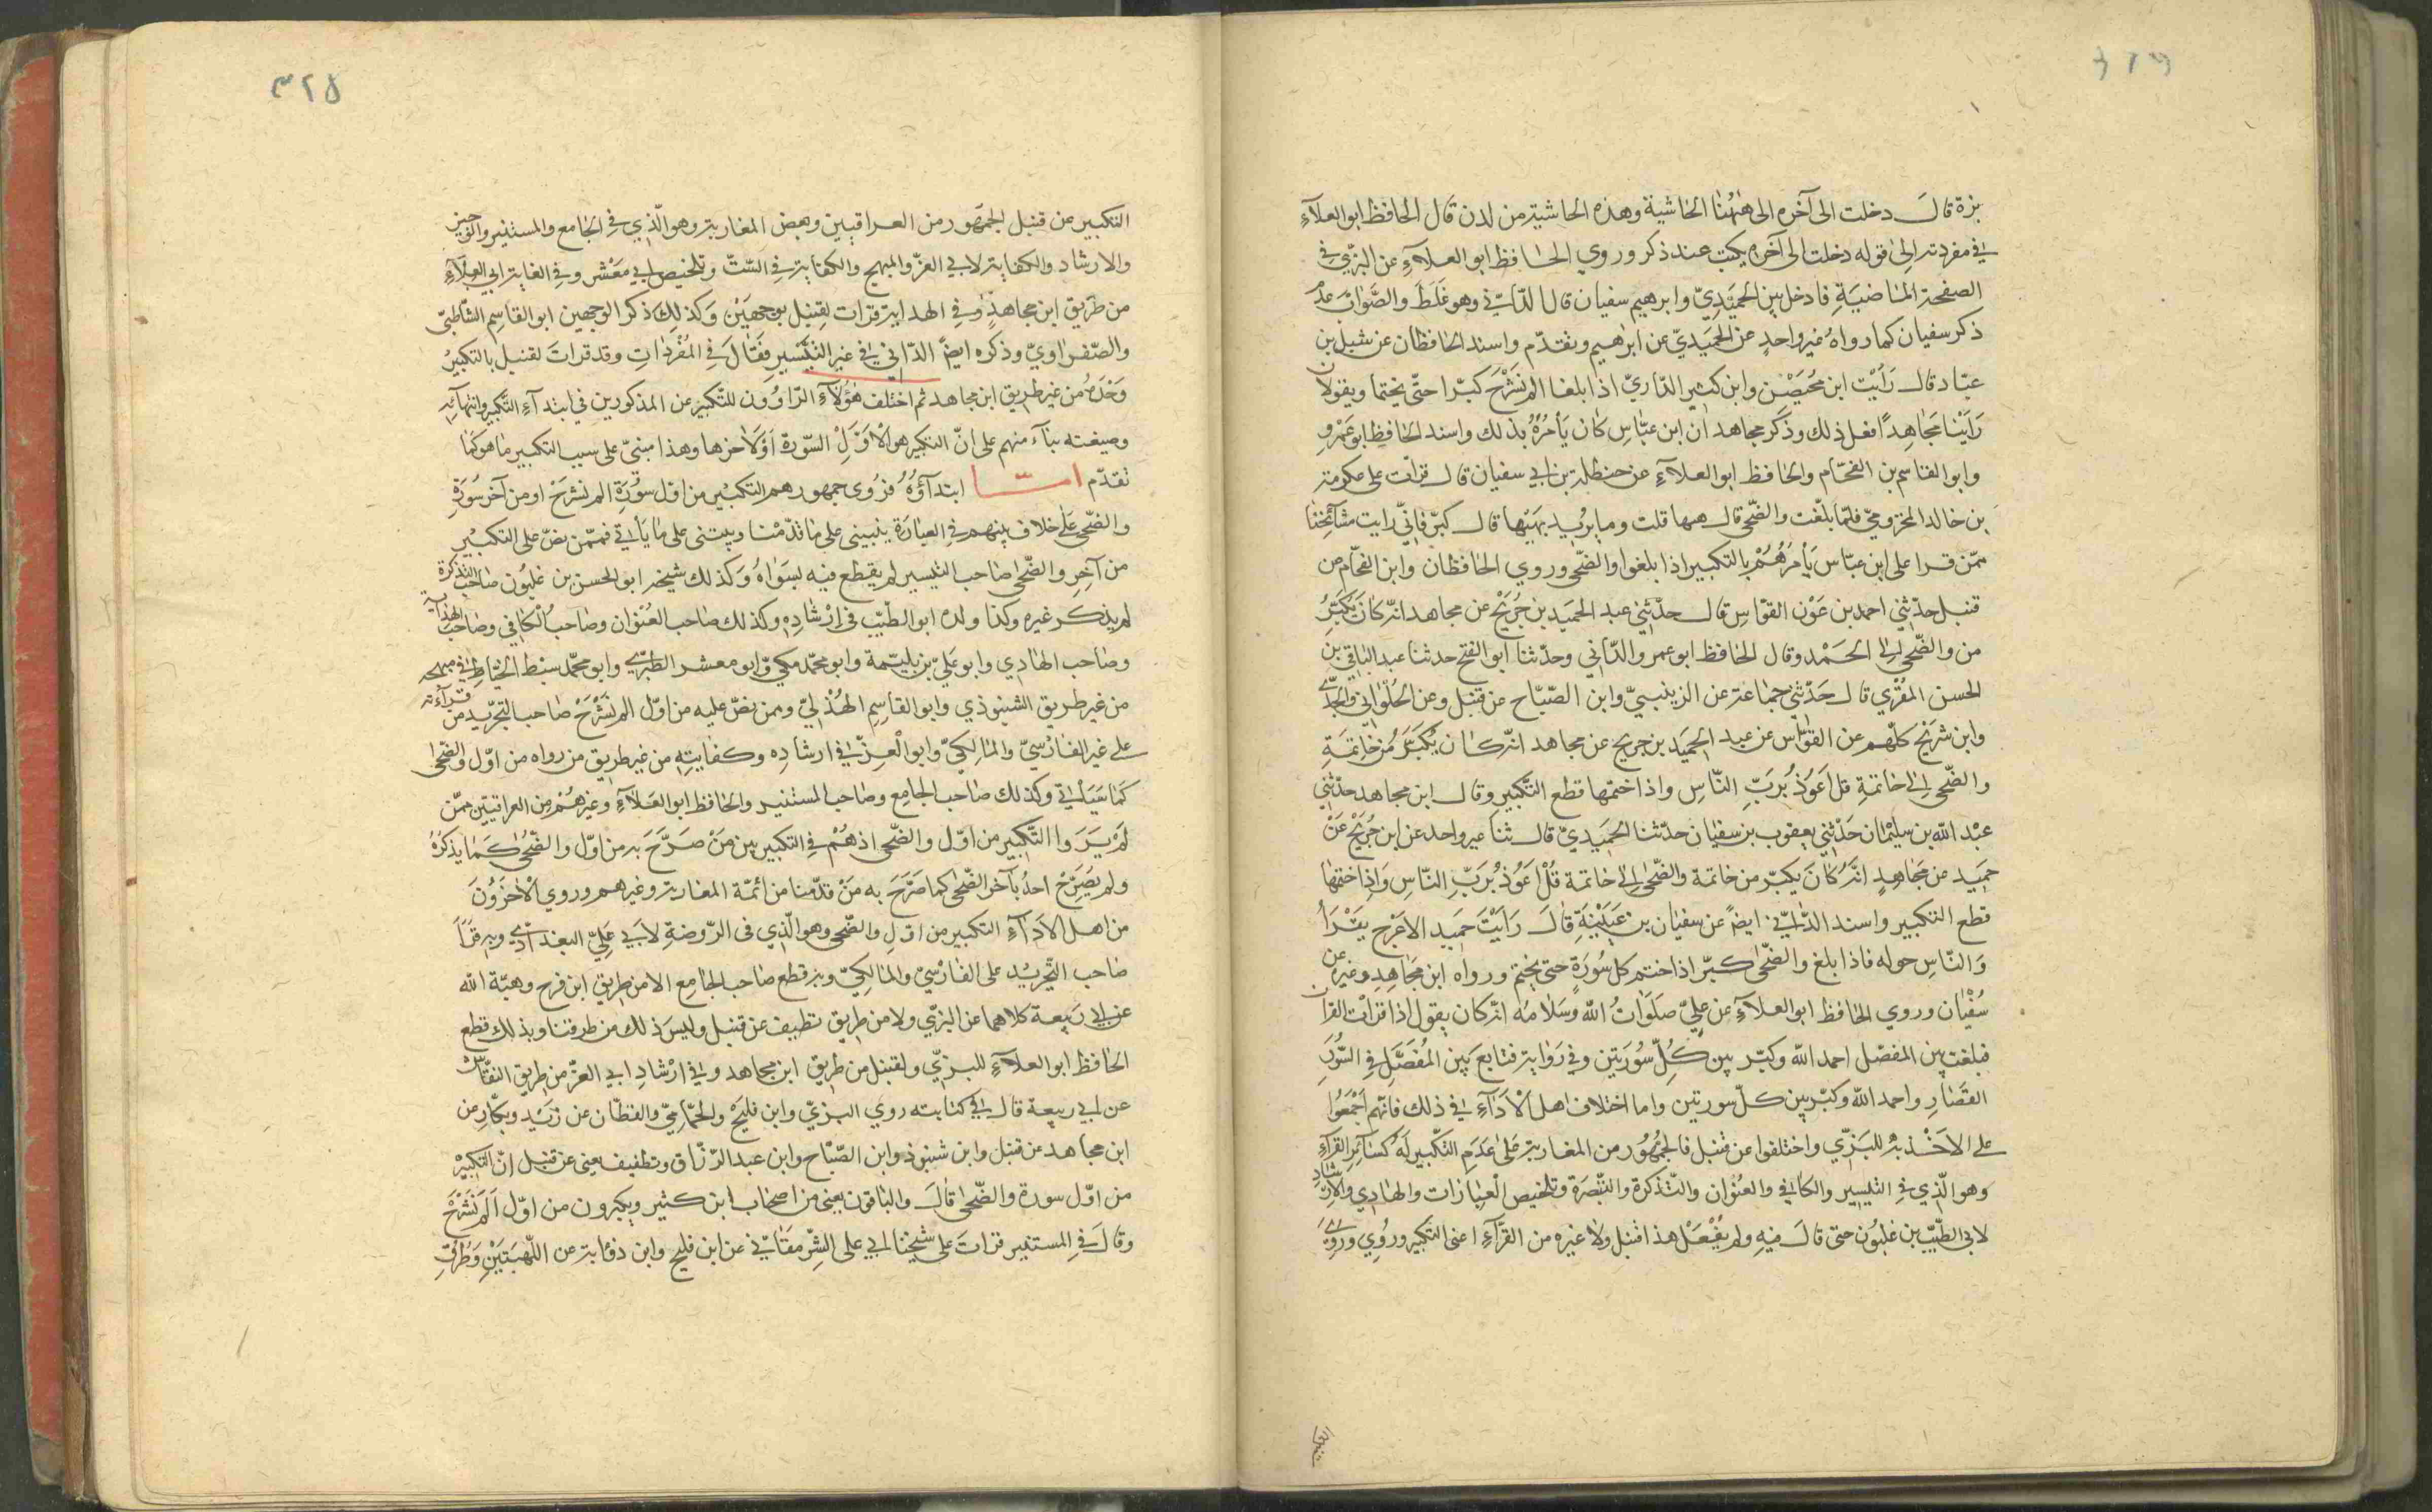 بزة قال دخلت الى آخره الى ههنا الحاشية وهذه الحاشية من لدن قال الحافظ ابو العلآء
في مفردته الى قوله دخلت الى آخره يكتب عند ذكر وروي الحافظ ابو العلآء عن البزّي في
الصفحة الماضية فادخل بين الحميدي وابرهيم سفيان قال الدّانيّ وهو غلط والصّواب عدم
ذكر سفيان كما رواه غير واحد عن الحميديّ عن ابرهيم وتقدّم واسند الحافظان عن شبل بن
عبّاد قال رأيت ابن محيصن وابن كثير الدّاريّ اذا بلغا الم نشرح كبّرا حتّى يختما ويقولان
رأينا مجاهدًا فعل ذلك وذكر مجاهد ان ابن عبّاس كان يأمره بذلك واسند الحافظ ابو عمرو
وابو القاسم بن الفحّام والحافظ ابو العلآء عن حنظلة بن ابي سفيان قال قرات على عكرمة
بن خالد المخزوميّ فلمّا بلغت والضّحى قال هيها قلت وما يريد بهيها قال كبّر فانّي رايت مشآئخنا
ممّن قرا على ابن عبّاس يأمرهم بالتكبير اذا بلغوا والضّحى وروي الحافظان وابن الفحّام عن
قنبل حدّثني احمد بن عون القوّاس قال حدّثني عبد الحميد بن جريج عن مجاهد انّه كان يكبّر
من والضّحى الى الحمد وقال الحافظ ابو عمرو الدّاني وحدّثنا ابو الفتح حدثنا عبد الباقي بن
الحسن المقري قال حدّثني جماعة عن الزينبيّ وابن الصّبّاح عن قنبل وعن الحلواني والجدّي
وابن شريح كلّهم عن القوّاس عن عبد الحميد بن جريج عن مجاهد انّه كان يكبّر من خاتمة
والضّحى الى خاتمة قل اعوذ بربّ النّاس واذا ختمها قطع التّكبير وقال ابن مجاهد حدّثني
عبد الله بن سليمان حدّثني يعقوب بن سفيان حدّثنا الحميديّ قال ثنا غير واحد عن ابن جريج عن
حميد عن مجاهد انّه كان يكبّر من خاتمة والضّحى الى خاتمة قل اعوذ بربّ النّاس واذا ختمها
قطع التكبير واسند الدّانيّ ايضً عن سفيان بن عيينة قال رأيت حميد الاعرج يقرأ
والنّاس حوله فاذا بلغ والضّحى كبّر اذا ختم كل سورة حتى يختم ورواه ابن مجاهد وغيره عن
سفيان وروي الحافظ ابو العلآء عن عليّ صلوات الله وسلامه انّه كان يقول اذا قرات القرآن
فبلغت بين المفصّل احمد الله وكبّر بين كلّ سورتين وفي رواية فتابع بين المفصّل في السّور
القصار واحمد الله وكبّر بين كلّ سورتين واما اختلاف اهل الادآء في ذلك فانّهم اجمعوا
على الاخذ به للبزّي واختلفوا عن قنبل فالجمهور من المغاربة على عدم التّكبير له كسائر القرآء
وهو الّذي في التيسير والكافي والعنوان والتّذكرة والتّبصرة وتلخيص العبارات والهادي والارشاد
لابي الطّيّب بن غلبون حتى قال فيه ولم يفعل هذا قنبل ولا غيره من القرّآء اعني التكبير وروي
التكبير
٣٢٥
التكبير عن قنبل الجمهور من العراقيين وبعض المغاربة وهو الّذي في الجامع والمستنير والوجيز
والارشاد والكفاية لابي العزّ والمبهج والكفاية في السّتّ وتلخيص ابي معشر وفي الغاية ابي العلآء
من طريق ابن مجاهد وفي الهداية قرات لقنبل بوجهين وكذلك ذكر الوجهين ابو القاسم الشّاطبيّ
والصّفراويّ وذكره ايضً الدّاني في غير التّيسير فقال في المفردات وقد قرات لقنبل بالتكبير
وحده من غير طريق ابن مجاهد ثم اختلف هؤلآء الرّاوون للتّكبير عن المذكورين في ابتدآء التّكبير وانتهآئه
وصيغته بنآء منهم على انّ التكبير هو لاوّل السّورة او لآخرها وهذا مبنيّ على سبب التكبير ما هو كما
تقدّم امّا ابتدآؤه فروى جمهورهم التكبير من اوّل سورة الم نشرح او من آخر سورة
والضّحى على خلاف بينهم في العبارة ينبني على ما قدّمنا ويبتنى على ما يأتي فممّن نصّ على التكبير
من آخر والضّحى صاحب التيسير لم يقطع فيه بسواه وكذلك شيخه ابو الحسن بن غلبون صاحب التذكرة
لم يذكر غيره وكذا ولده ابو الطّيّب في ارشاده وكذلك صاحب العنوان وصاحب الكافي وصاحب الهداية
وصاحب الهادي وابو عليّ بن بليّمة وابو محمّد مكيّ وابو معشر الطبري وابو محمّد سبط الخيّاط في مبهجه
من غير طريق الشنبوذي وابو القاسم الهذليّ وممن نصّ عليه من اوّل الم نشرح صاحب التجريد من قرآءته
على غير الفارسيّ والمالكيّ وابو العزّ في ارشاده وكفايته من غير طريق من رواه من اوّل والضّحى
كما سيأتي وكذلك صاحب الجامع وصاحب المستنير والحافظ ابو العلآء وغيرهم من العراقيين ممّن
لم يروا التّكبير من اوّل والضّحى اذ هم في التكبير بين من صرّح به من اوّل والضّحى كما يذكره
ولم يصرّح احد بآخر الضّحى كما صرّح به من قدّمنا من ائمّة المغاربة وغيرهم وروي الآخرون
من اهل الادآء التكبير من اوّل والضّحى وهو الّذي في الرّوضة لابي عليّ البغدادي وبه قرأ
صاحب التّجريد على الفارسيّ والمالكيّ وبه قطع صاحب الجامع الا من طريق ابن فرح وهبّة الله
عن ابي ربيعة كلاهما عن البزّي ولا من طريق نظيف عن قنبل وليس ذلك من طرقنا وبذلك قطع
الحافظ ابو العلآء للبزّي ولقنبل من طريق ابن مجاهد وفي ارشاد ابي العزّ من طريق النقّاش
عن ابي ربيعة قال في كتابته روي البزيّ وابن فليح والحمّاميّ والقطّان عن زيد وبكّار عن
ابن مجاهد عن قنبل وابن شنبوذ وابن الصّبّاح وابن عبد الرّزّاق ونظيف يعني عن قنبل انّ التكبير
من اوّل سورة والضّحى قال والباقون يعني من اصحاب ابن كثير ويكبرون من اوّل الم نشرح
وقال في المستنير قرات على شيخنا ابي علي الشّرمقانيّ عن ابن فليح وابن ذؤابة عن اللّهبيين